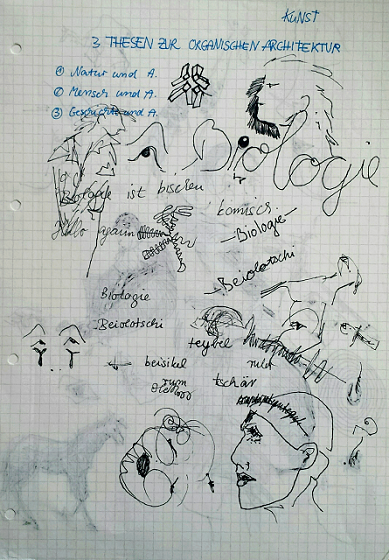 KUNST
3 THESEN ZUR ORGANISCHEN ARCHITEKTUR
① Natur und A.
② Mensch und A.
③ Geschichte und A.
Biologie
Biologie ist bischen
komisch
Hallo again
– Biologie –
– Beiolotschi
Biologie
Beiolotschi
teybel
beisikel
tschär